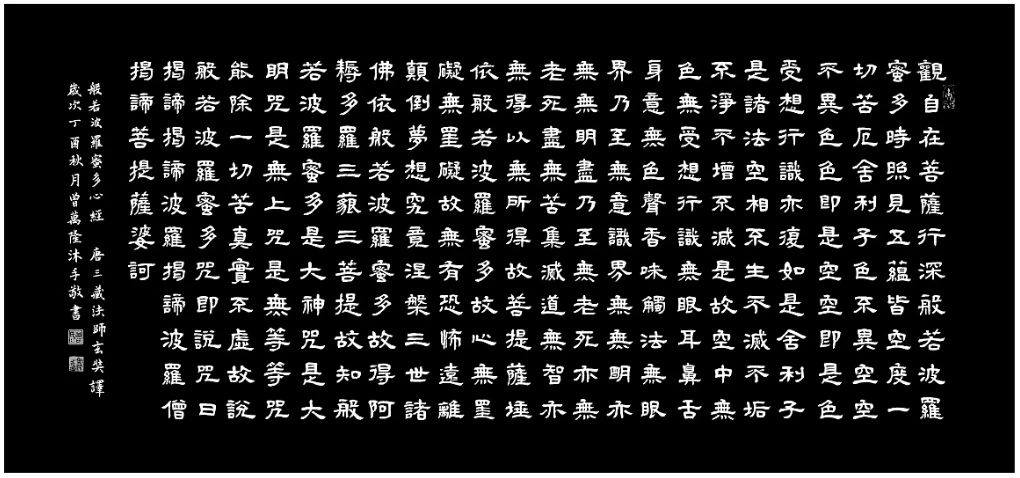 觀自在菩薩行深般若波羅
蜜多時照見五蘊皆空度一
切苦厄舍利子色不異空空
不異色色即是空空即是色
受想行識亦復如是舍利子
是諸法空相不生不滅不垢
不淨不增不減是故空中無
色無受想行識無眼耳鼻舌
身意無色聲香味觸法無眼
界乃至無意識界無無明亦
無無明盡乃至無老死亦無
老死盡無苦集滅道無智亦
無得以無所得故菩提薩埵
依般若波羅蜜多故心無罣
礙無罣礙故無有恐怖遠離
顛倒夢想究竟涅槃三世諸
佛依般若波羅蜜多故得阿
耨多羅三藐三菩提故知般
若波羅蜜多是大神咒是大
明咒是無上咒是無等等咒
能除一切苦真實不虛故說
般若波羅蜜多咒即說咒曰
揭諦揭諦波羅揭諦波羅僧
揭諦菩提薩婆訶
般若波羅蜜多心經 唐三藏法師玄奘譯
歲次丁酉秋月曾萬隆沐手敬書